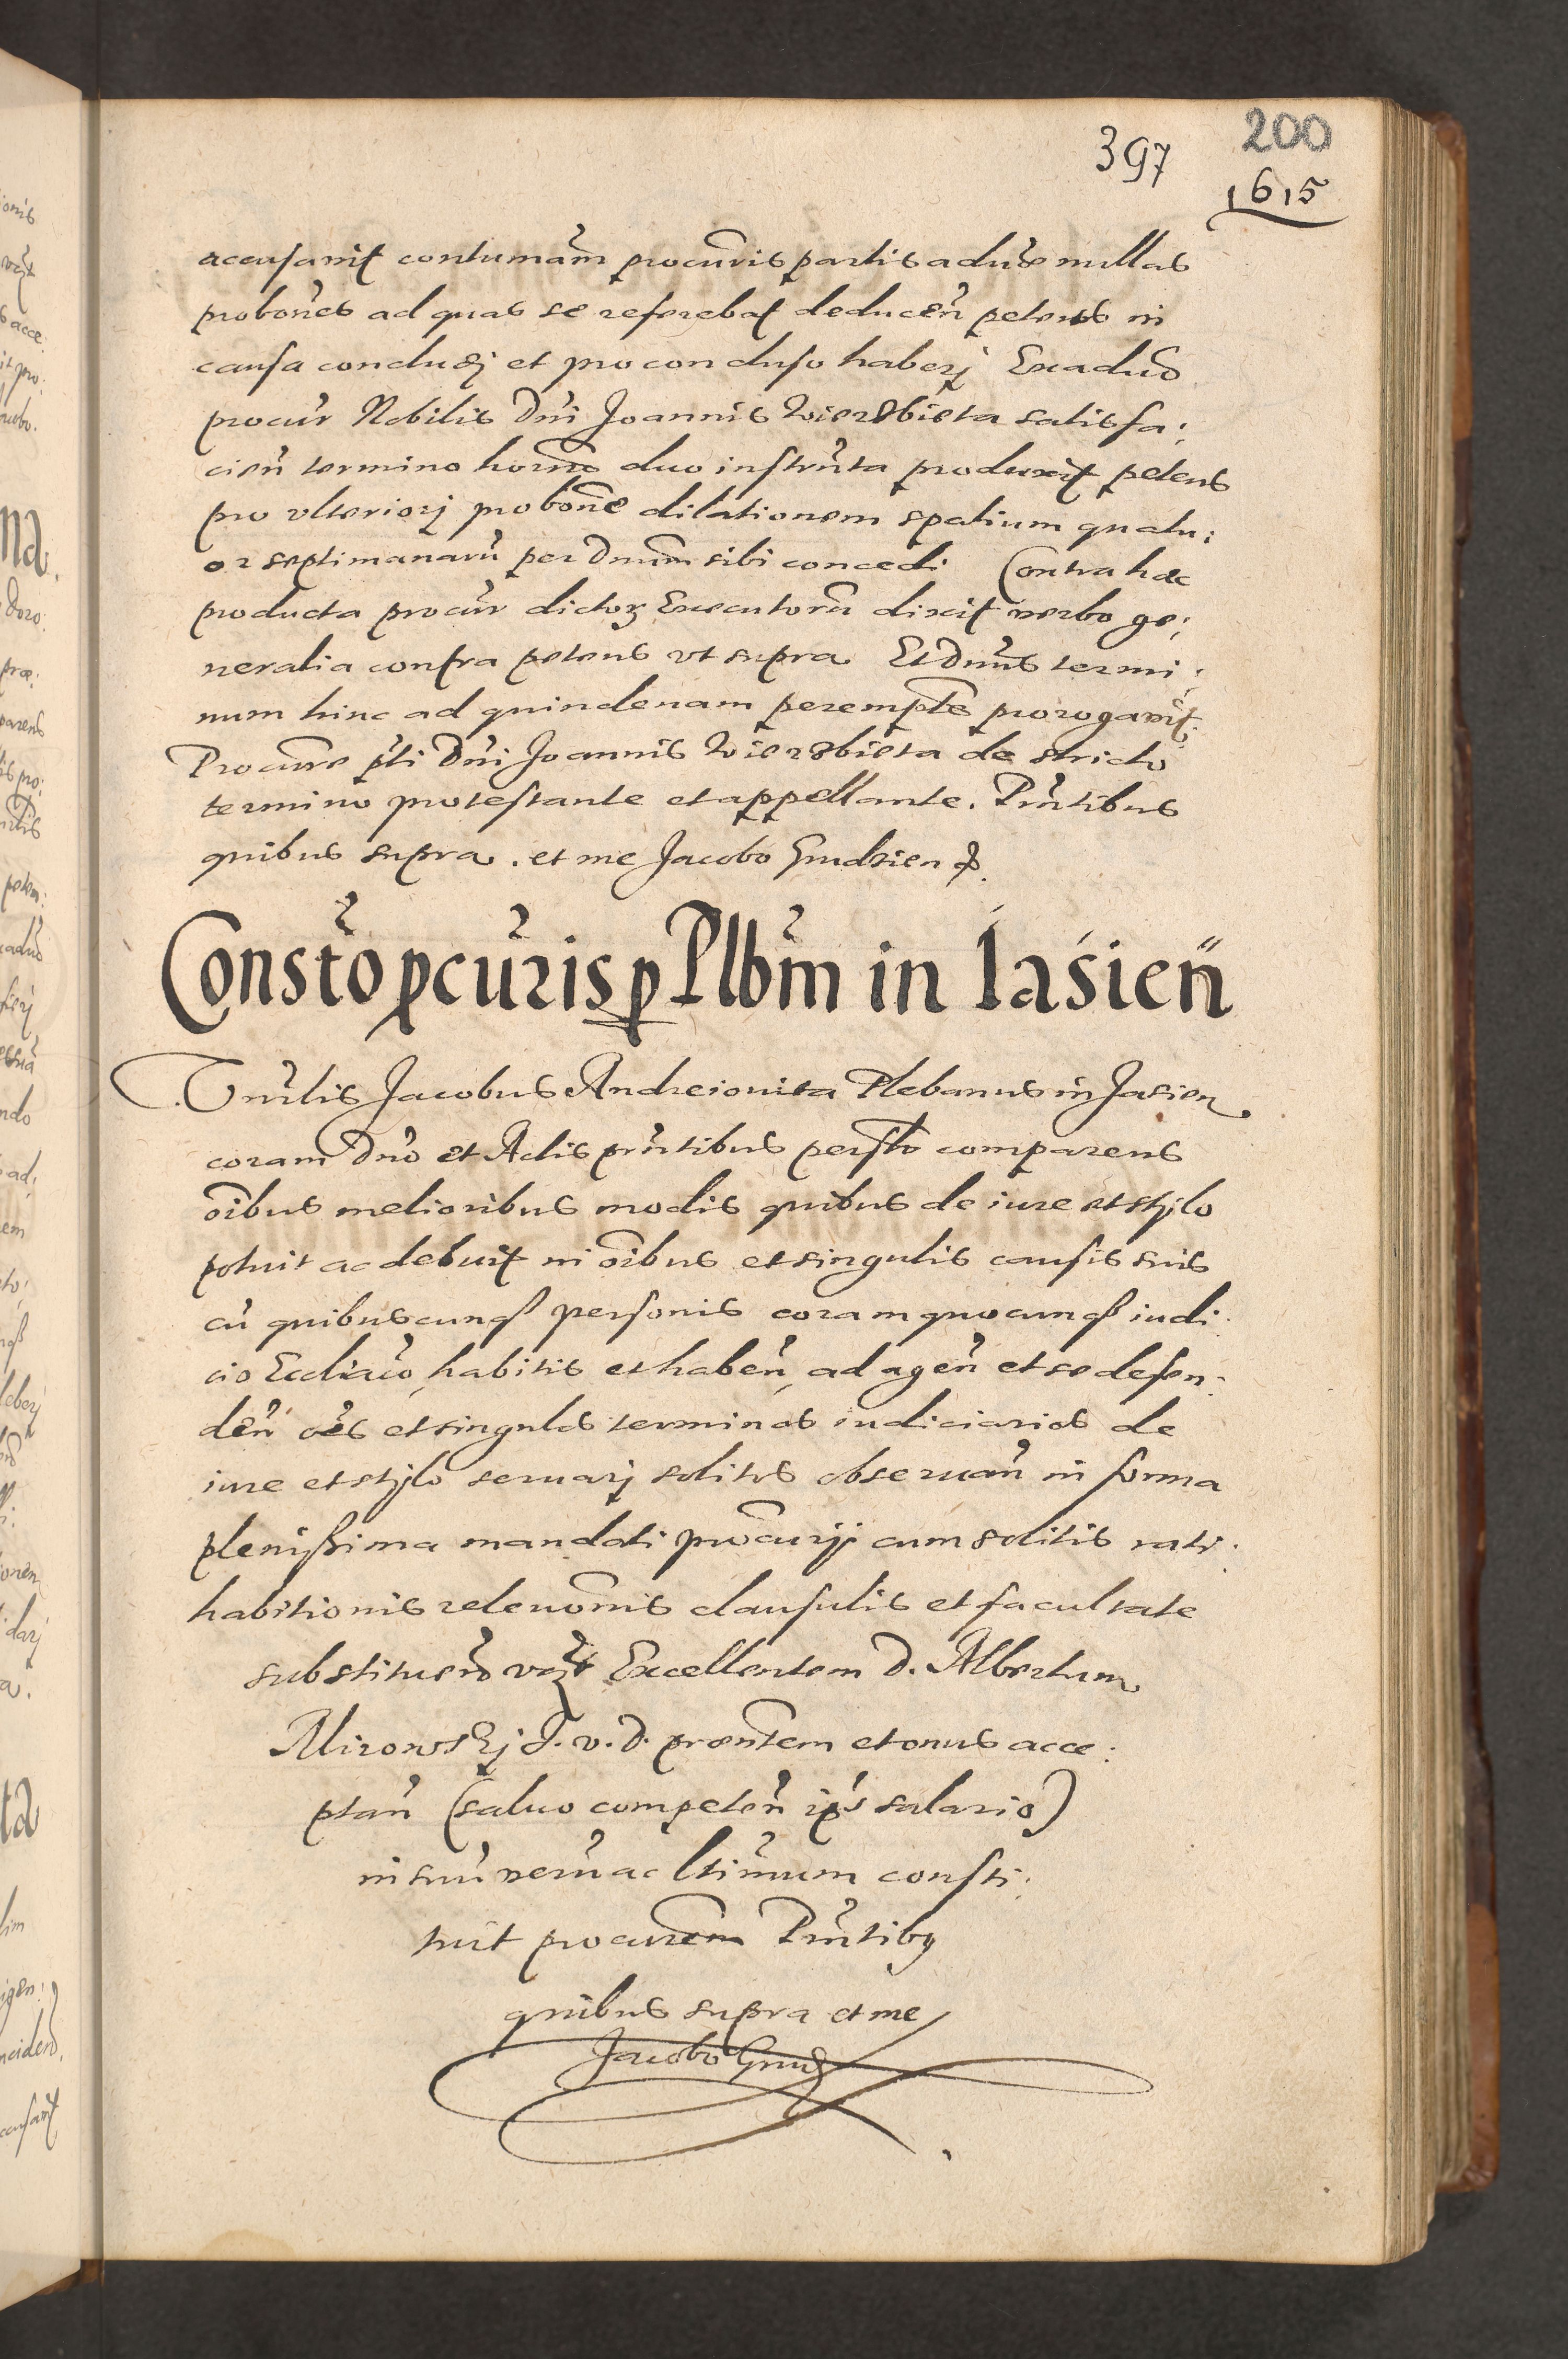 397 200
1615
accusavit contumãm procuris partis aduse nullas
probones ad quas se referebat deducen petens in
causa concludj et pro concluso haberj Exaduo
procur Nobilis Dni Joannis Wierzbieta satisfa:
cien termino horno duo instrnta produxit petens
pro vlteriorj probone dilationem spatium quatu:
or septimanaru per Dnum sibi concedi Contra hæc
producta procur dictoꝝ Executoru dixit verbo ge:
neralia contra petens vt supra Et Dnus termi:
num hinc ad quindenam perempte prorogavit.
Procure pti Dni Joannis Wierzbieta de stricto
termino protestante et appellante. Pnntibus
quibus supra. et me Jacobo Grudzien
Consto pcuris p Plbm in Jasień
Vnrlis Jacobus Andreiovita Plebanus in Jasien
coram Dno et Actis pnntibus persltr comparens
oibus melioribus modis quibus de iure et stylo
potuit ac debuit in oibus et singulis causis suis
cu quibuscunqß personis coram quocunqß iudi:
cio Ecclaico, habitis et haben, ad agen et se defen:
den oes et singulos terminos iudiciarios de
iure et stylo seruarj solitos obseruan in forma
plenißima mandati procurij cum solitis rati:
habitionis releuonis clausulis et facultate
substituen vazt Excellentem D. Albertum
Mirowskj J. v. D. præntem et onus acce:
ptan (saluo competen ips salario)
in suu veru ac ltimum consti:
tuit procurem Pnntibꝫ
quibus supra et me
Jacobo Grud